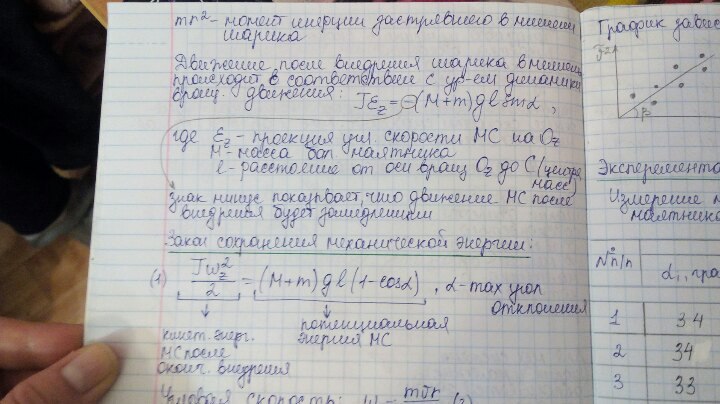 mr² - момент инерции застрявшего в мишени
шарика
Движение после внедрения шарика в мишень
происходит в соответствие с ур-ем динамики
вращ. движения: Jε_z = -(M+m)gl sinα,
где ε_z - проекция угл. скорости МС на O_z
M - масса бал. маятника
l - расстояние от оси вращ O_z до C (центра
масс)
знак минус показывает, что движение МС после
внедрения будет замедленным
Закон сохранения механической энергии:
(1) Jω_z²/2 = (M+m)gl(1-cosα), α - max угол
отклонения
кинет. энерг.
МС после
оконч. внедрения
потенциальная
энергия МС
Угловая скорость: ω =
График
β
Эксперимента
Измерение
маятника
№ п/п
α₁, гра
1 34
2 34
3 33